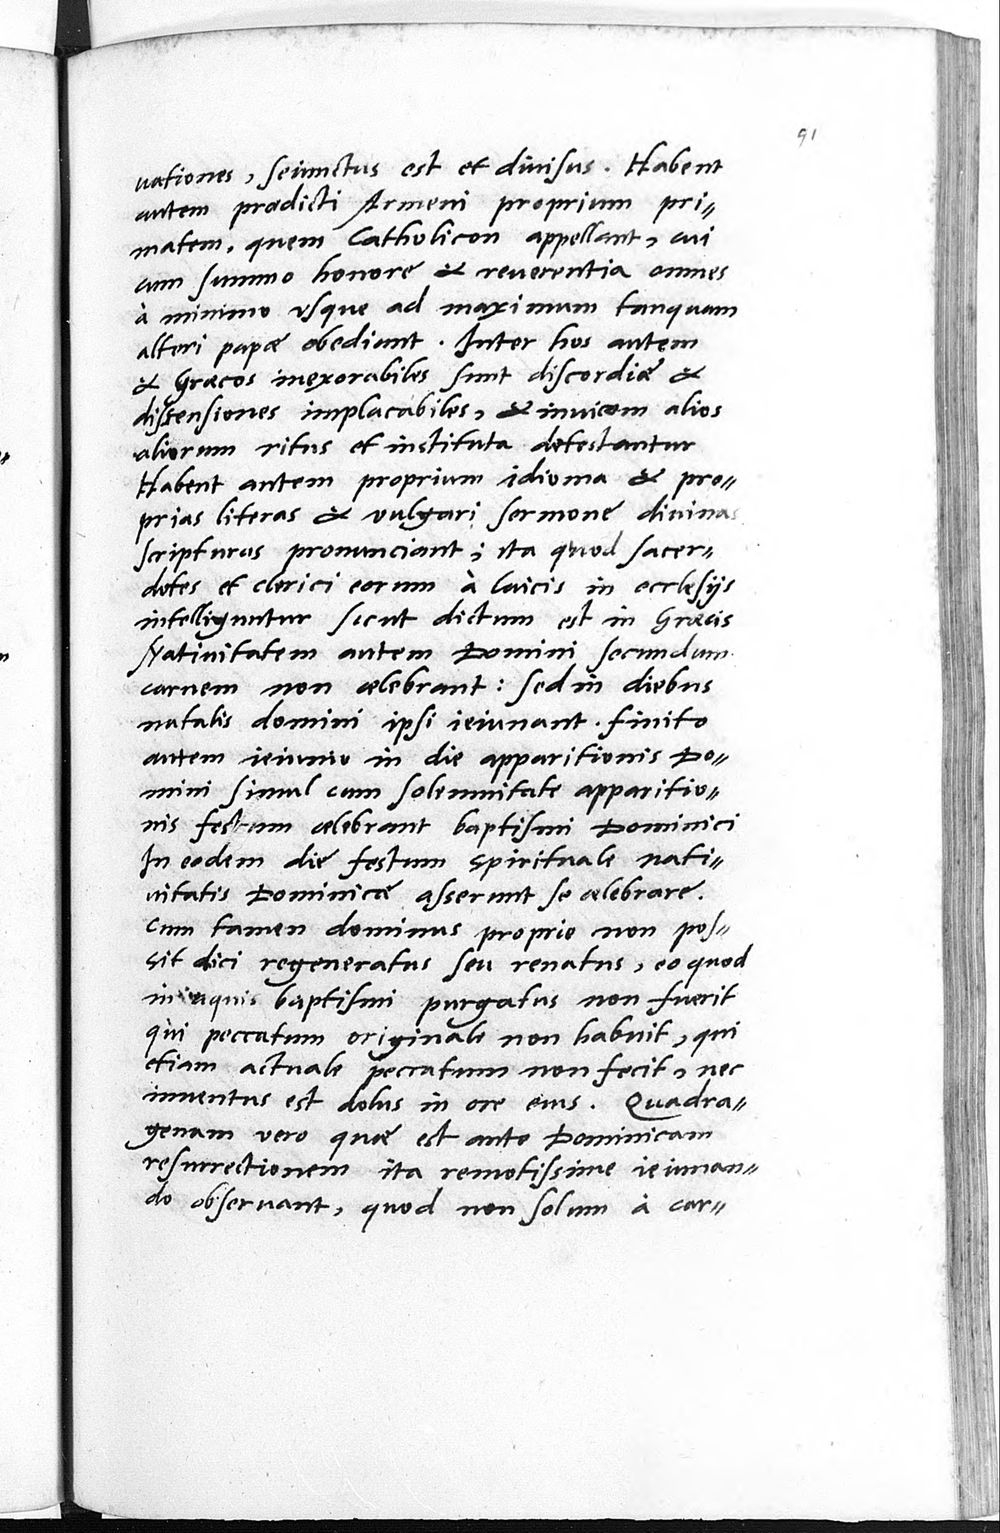 91
uationes, seiunctus est et diuisus. Habent
autem prædicti Armeni proprium pri〃
matem, quem Catholicon appellant, cui
cum summo honore & reuerentia omnes
à minimo vsque ad maximum tanquam
alteri papæ obediant. Inter hos autem
& Græcos inexorabiles sunt discordiæ &
dissensiones implacabiles, & inuicem alios
aliorum ritus et instituta detestantur
Habent autem proprium idioma & pro〃
prias literas & vulgari sermone diuinas
scripturas pronunciant; ita quod sacer〃
dotes et clerici eorum à laicis in ecclesijs
intelliguntur sicut dictum est in Græcis
Natiuitatem autem Domini secundum
carnem non celebrant: sed in diebus
natalis domini ipsi ieiunant. finito
autem ieiunio in die apparitionis Do〃
mini simul cum solemnitate apparitio〃
nis festum celebrant baptismi Dominici
In eodem die festum spirituale nati〃
uitatis Dominicæ asserunt se celebrare.
cum tamen dominus proprie non pos〃
sit dici regeneratus seu renatus, eo quod
in aquis baptismi purgatus non fuerit
qui peccatum originale non habuit, qui
etiam actuale peccatum non fecit, nec
inuentus est dolus in ore eius. Quadra〃
genam vero quæ est ante Dominicam
resurrectionem ita remotissime ieiunan〃
do obseruant, quod non solum à car〃